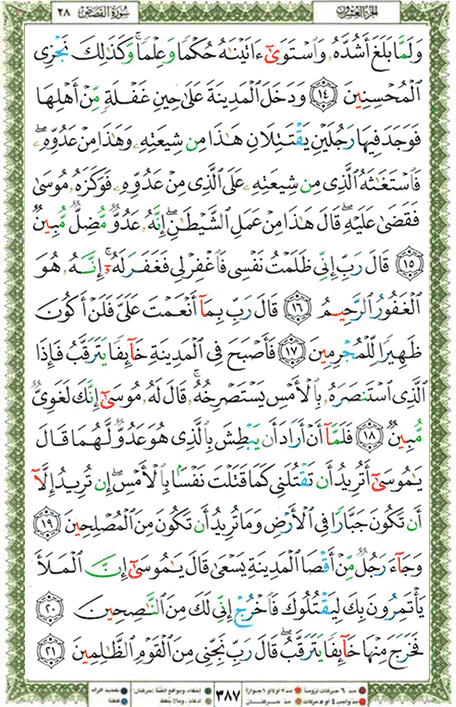 سُورَةُ القَصَصِ ٢٨
الجزء العشرون
وَلَمَّا بَلَغَ أَشُدَّهُۥ وَٱسْتَوَىٰٓ ءَاتَيْنَٰهُ حُكْمًا وَعِلْمًا ۚ وَكَذَٰلِكَ نَجْزِى
ٱلْمُحْسِنِينَ ١٤ وَدَخَلَ ٱلْمَدِينَةَ عَلَىٰ حِينِ غَفْلَةٍ مِّنْ أَهْلِهَا
فَوَجَدَ فِيهَا رَجُلَيْنِ يَقْتَتِلَانِ هَٰذَا مِن شِيعَتِهِۦ وَهَٰذَا مِنْ عَدُوِّهِۦ ۖ
فَٱسْتَغَٰثَهُ ٱلَّذِى مِن شِيعَتِهِۦ عَلَى ٱلَّذِى مِنْ عَدُوِّهِۦ فَوَكَزَهُۥ مُوسَىٰ
فَقَضَىٰ عَلَيْهِ ۖ قَالَ هَٰذَا مِنْ عَمَلِ ٱلشَّيْطَٰنِ ۖ إِنَّهُۥ عَدُوٌّ مُّضِلٌّ مُّبِينٌ
١٥ قَالَ رَبِّ إِنِّى ظَلَمْتُ نَفْسِى فَٱغْفِرْ لِى فَغَفَرَ لَهُۥٓ ۚ إِنَّهُۥ هُوَ
ٱلْغَفُورُ ٱلرَّحِيمُ ١٦ قَالَ رَبِّ بِمَآ أَنْعَمْتَ عَلَىَّ فَلَنْ أَكُونَ
ظَهِيرًا لِّلْمُجْرِمِينَ ١٧ فَأَصْبَحَ فِى ٱلْمَدِينَةِ خَآئِفًا يَتَرَقَّبُ فَإِذَا
ٱلَّذِى ٱسْتَنصَرَهُۥ بِٱلْأَمْسِ يَسْتَصْرِخُهُۥ ۚ قَالَ لَهُۥ مُوسَىٰٓ إِنَّكَ لَغَوِىٌّ
مُّبِينٌ ١٨ فَلَمَّآ أَنْ أَرَادَ أَن يَبْطِشَ بِٱلَّذِى هُوَ عَدُوٌّ لَّهُمَا قَالَ
يَٰمُوسَىٰٓ أَتُرِيدُ أَن تَقْتُلَنِى كَمَا قَتَلْتَ نَفْسًۢا بِٱلْأَمْسِ ۖ إِن تُرِيدُ إِلَّآ
أَن تَكُونَ جَبَّارًا فِى ٱلْأَرْضِ وَمَا تُرِيدُ أَن تَكُونَ مِنَ ٱلْمُصْلِحِينَ ١٩
وَجَآءَ رَجُلٌ مِّنْ أَقْصَا ٱلْمَدِينَةِ يَسْعَىٰ قَالَ يَٰمُوسَىٰٓ إِنَّ ٱلْمَلَأَ
يَأْتَمِرُونَ بِكَ لِيَقْتُلُوكَ فَٱخْرُجْ إِنِّى لَكَ مِنَ ٱلنَّٰصِحِينَ ٢٠
فَخَرَجَ مِنْهَا خَآئِفًا يَتَرَقَّبُ ۖ قَالَ رَبِّ نَجِّنِى مِنَ ٱلْقَوْمِ ٱلظَّٰلِمِينَ ٢١
٣٨٧